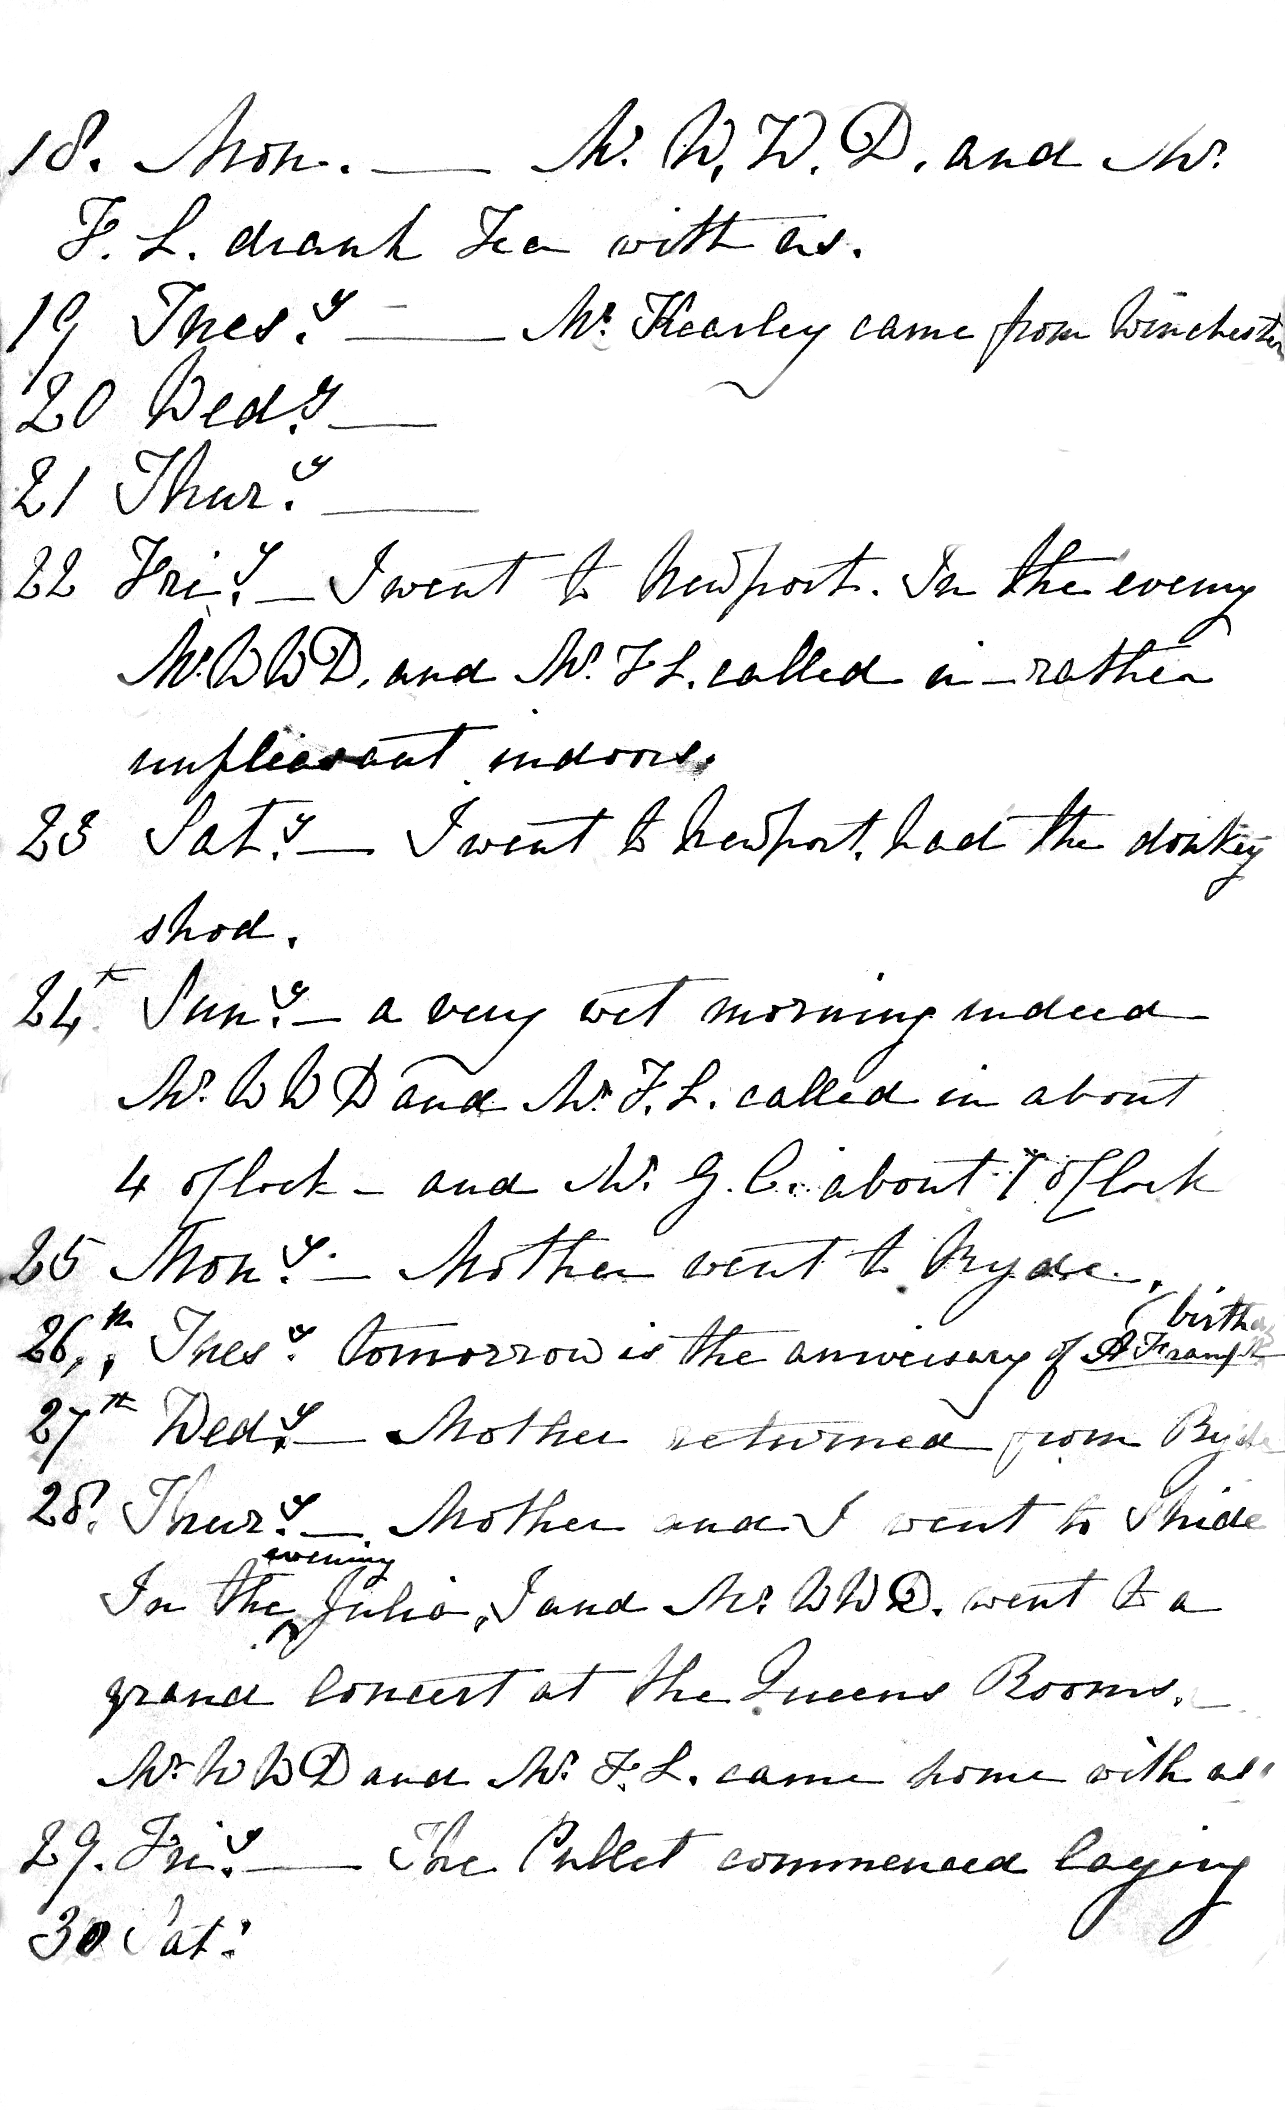 18. Mon. — M. W. W. D. and Mr.
F. L. drank Tea with us.
19 Tues.y — Mr. Kearley came from Winchester
20 Wed.y —
21 Thur.y —
22 Fri.y — I went to Newport. In the eveng
Mr. W W D. and Mr. F L. called in — rather
unpleasant indoors.
23 Sat.y — I went to Newport. had the donkey
shod.
24t Sun.y — a very wet morning indeed
Mr. W W D and Mr. F. L. called in about
4 o'Clock — and Mr. G. C. about 7 o'Clock
25 Mon.y — Mother went to Ryde.
(birthday
26th Tues.y tomorrow is the aniversary of A
27th Wed.y — Mother returned from Ryde
28. Thur.y — Mother and I went to Shide
evening
In the Julia, I and Mr. W W D. went to a
grand Concert at the Queens Rooms.
Mr. W W D and Mr. F. L. came home with us.
29. Fri.y — The Pullet commenced laying
30 Sat.